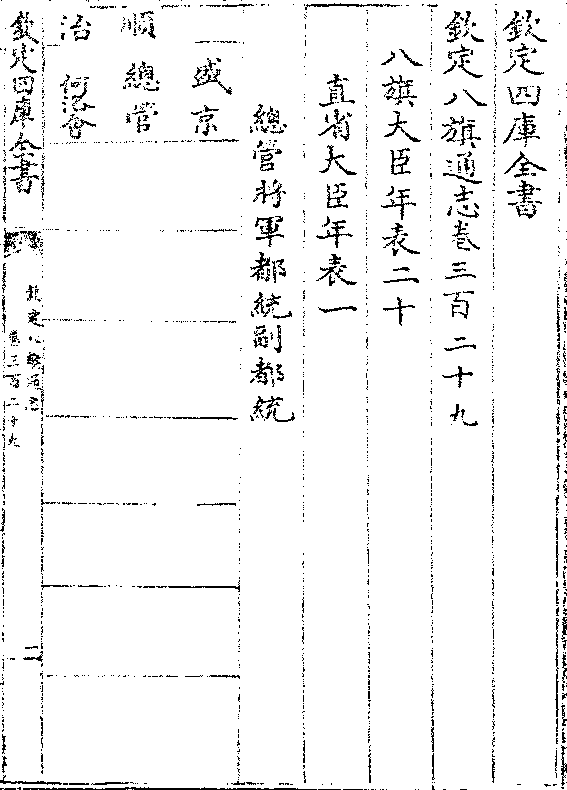 欽定四庫全書
欽定八旗通志卷三百二十九
八旗大臣年表二十
直省大臣年表一
總管將軍都統副都統
盛京
順 總管
治 何洛會
欽定四庫全書
欽定八旗通志
卷三百二十九
二